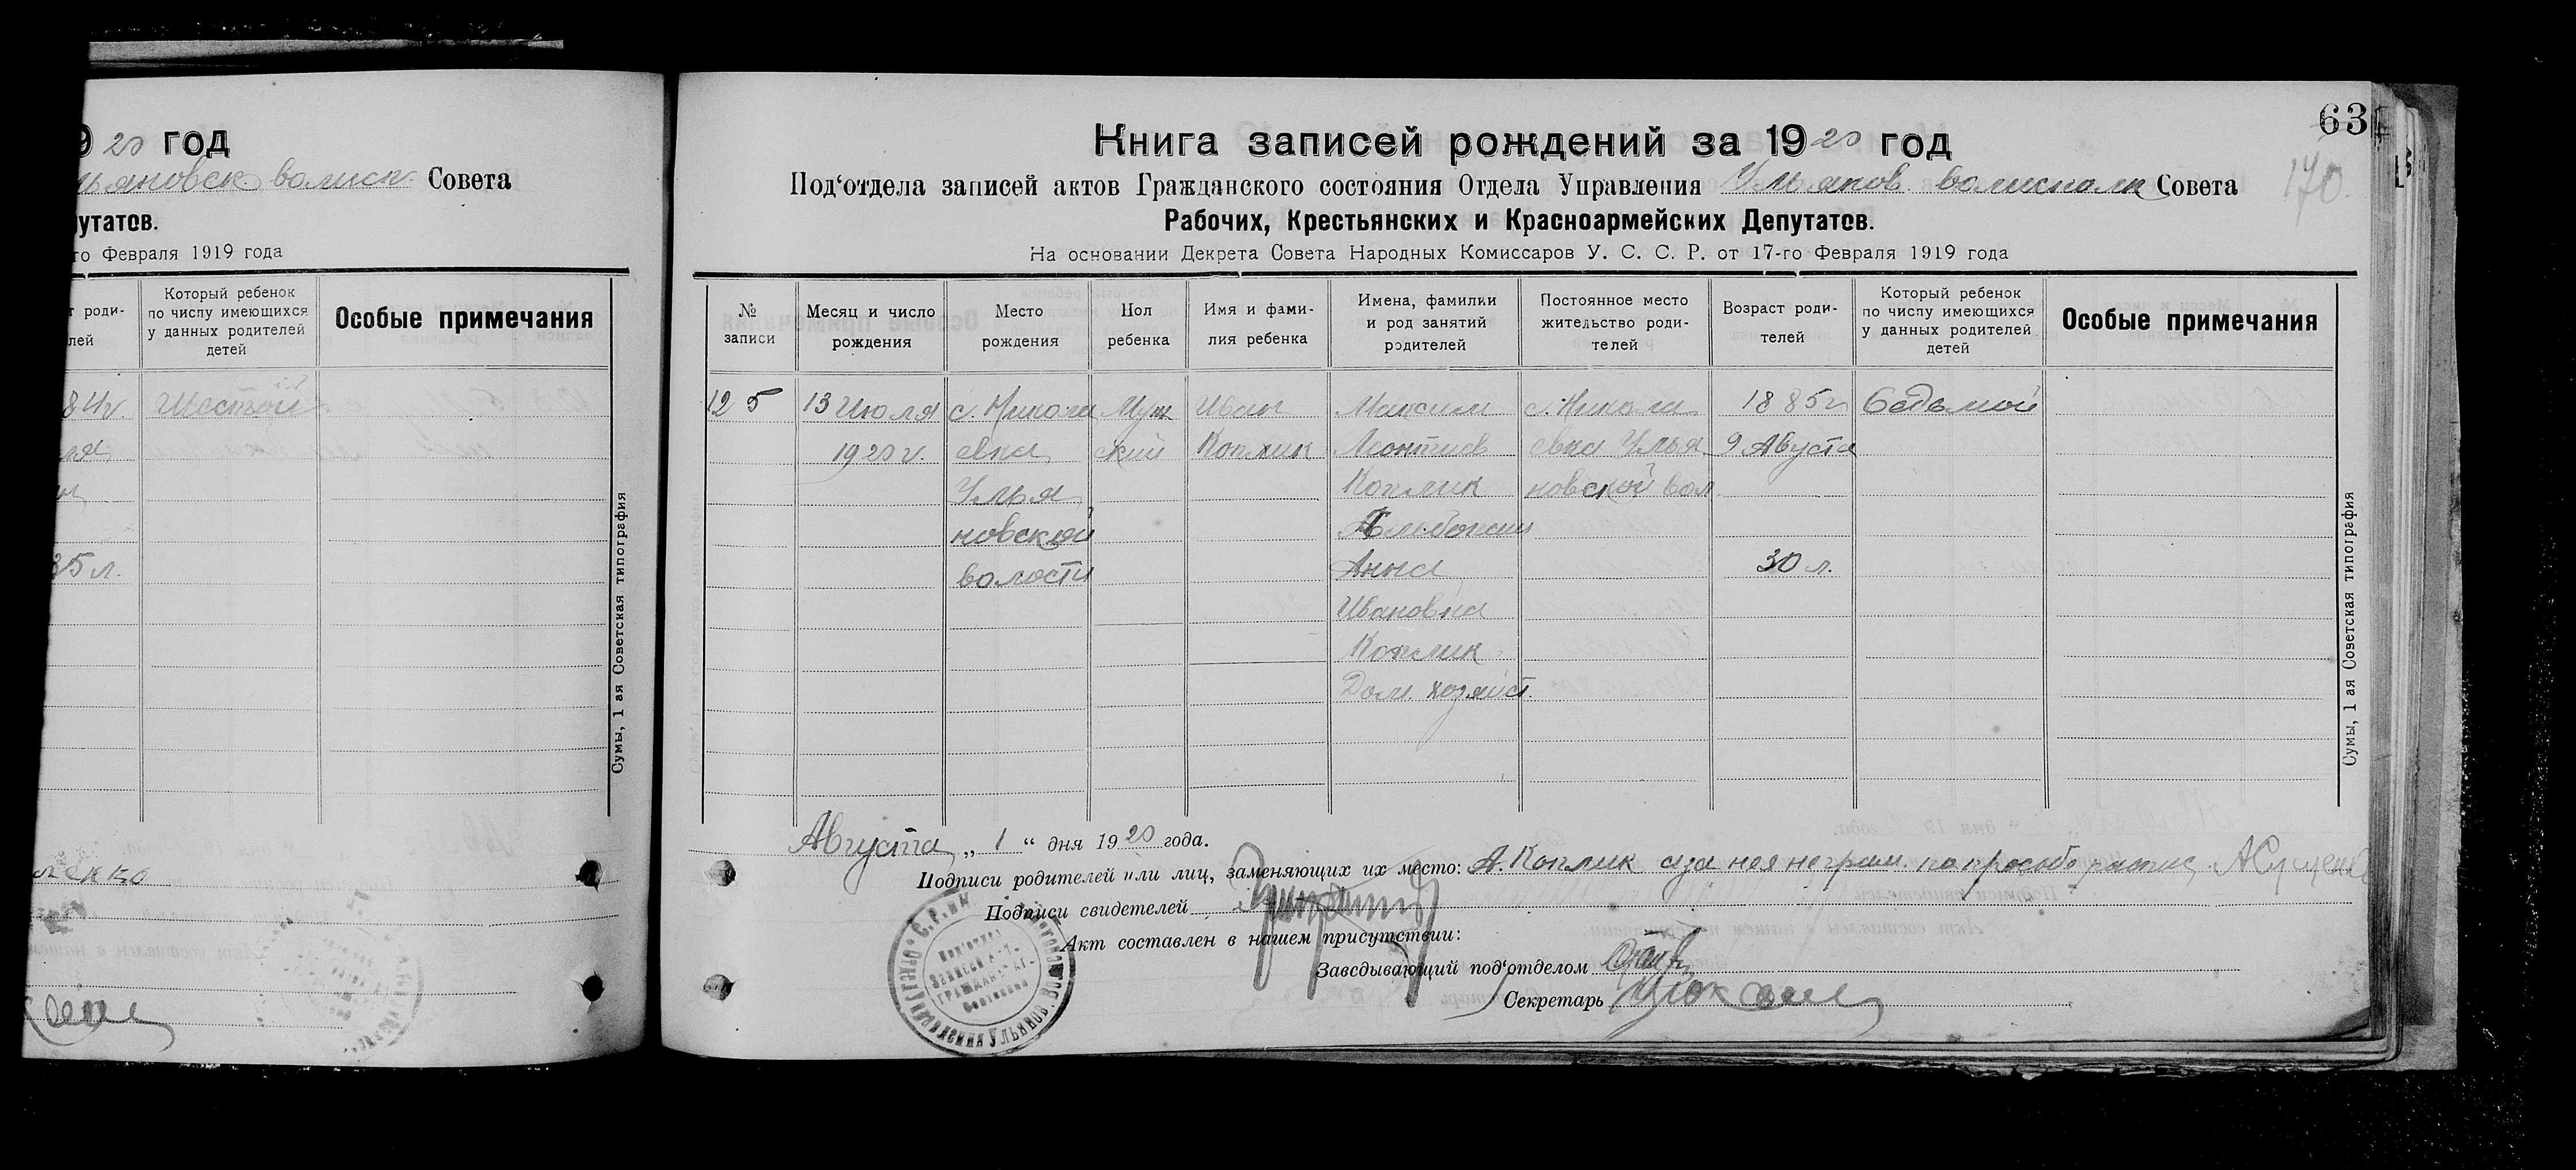 9 20 год
льяновск. волисп. Совета
путатов.
го Февраля 1919 года
т роди-
лей
Который ребенок
по числу имеющихся
у данных родителей
детей
Особые примечания
84 г Шестой
35 л.
Сумы, 1 ая Советская типография
63
170.
Книга записей рождений за 1920 год
Под‘отдела записей актов Гражданского состояния Отдела Управления Ульянов. волисполк Совета
Рабочих, Крестьянских и Красноармейских Депутатов.
На основании Декрета Совета Народных Комиссаров У. С. С. Р. от 17-го Февраля 1919 года
№
записи
Месяц и число
рождения
Место
рождения
Пол
ребенка
Имя и фами-
лия ребенка
Имена, фамилии
и род занятий
родителей
Постоянное место
жительство роди-
телей
Возраст роди-
телей
Который ребенок
по числу имеющихся
у данных родителей
детей
Особые примечания
125 13 Июля с. Никола Муж Иван Максим с. Никола 1885 г Седьмой
1920 г. евка ский Коплик Леонтиев евка Улья 9 Августа
Улья Коплик новской вол
новской Хлебопаш
волости Анна 30 л.
Ивановна
Коплик
Дом. хозяйст.
Сумы, 1 ая Советская типография
Августа „ 1 “ дня 1920 года.
Подписи родителей или лиц, заменяющих их место: А. Коплик а за нея неграм. по просьбе
Подписи свидетелей
Акт составлен в нашем присутствии:
Заведывающий под‘отделом
Секретарь